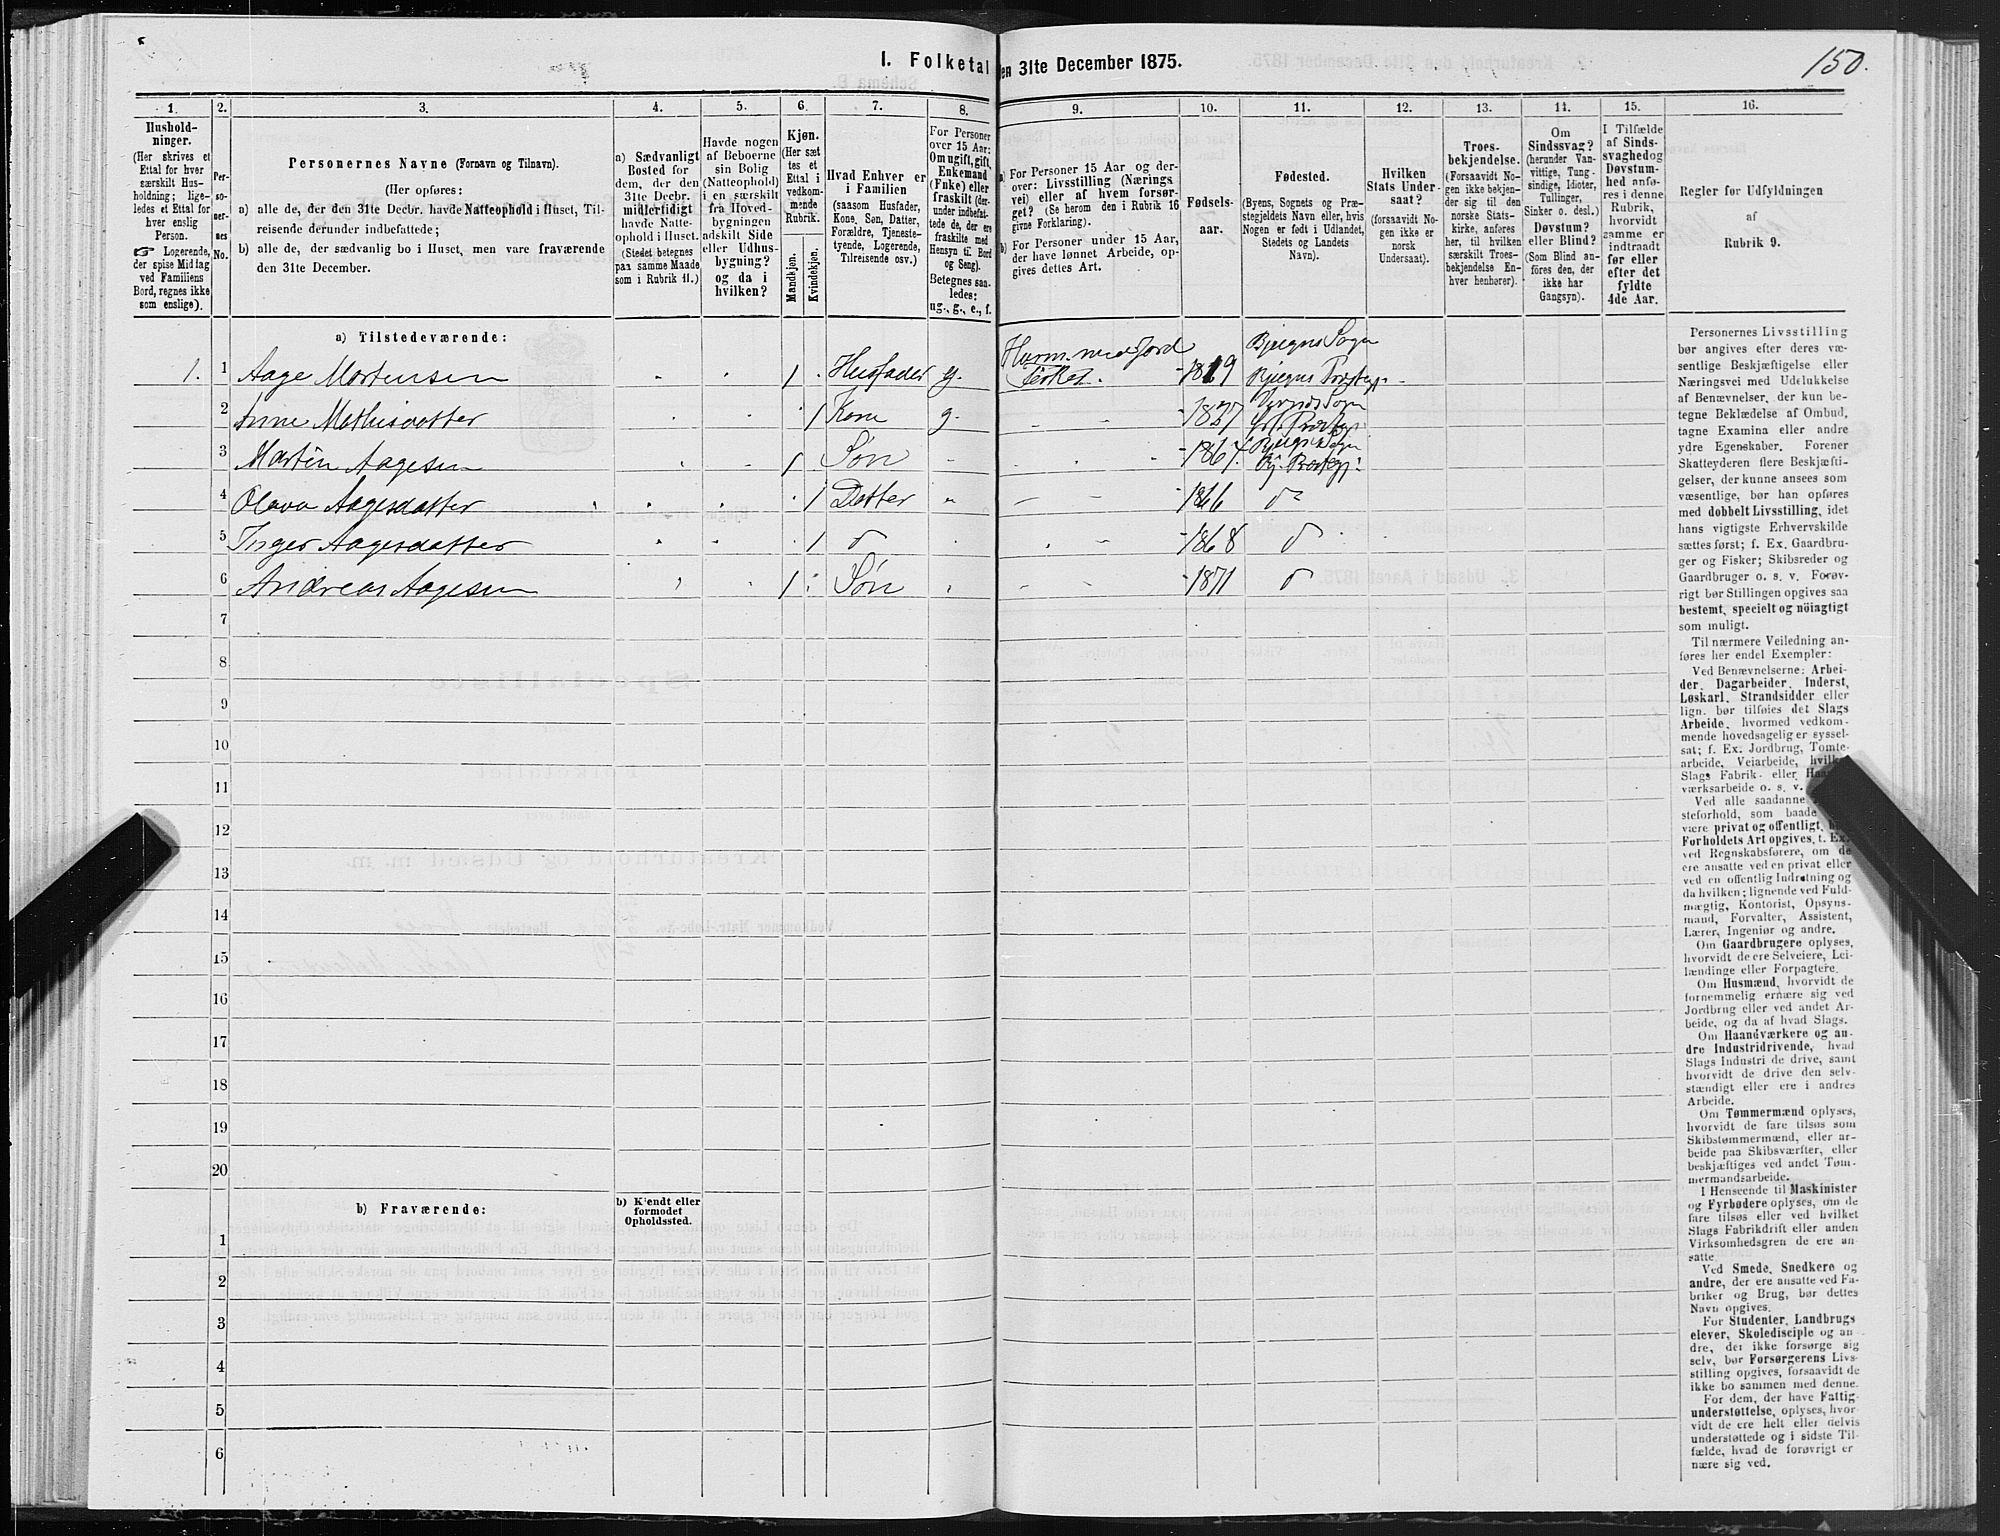 150.
I. Folketal
den 31te December 1875.
1.
2.
3.
4.
5.
6.
7.
8.
9.
10.
11.
12.
13.
14.
15.
16.
Hushold-
ninger.
(Her skrives et
Ettal for hver
særskilt Hus-
holdning; lige-
ledes et Ettal for
hver enslig
Person.
☞ Logerende,
der spise Middag
ved Familiens
Bord, regnes ikke
som enslige).
Per-
so-
ner-
nes
No.
Personernes Navne (Fornavn og Tilnavn).
(Her opføres:
a) alle de, der den 31te Decbr. havde Natteophold i Huset, Til-
reisende derunder indbefattede;
b) alle de, der sædvanlig bo i Huset, men vare fraværende
den 31te December.
a) Sædvanligt
Bosted for
dem, der den
31te Decbr.
midlertidigt
havde Natte-
ophold i Huset.
(Stedet betegnes
paa samme Maade
som i Rubrik 11.)
Havde nogen
af Beboerne
sin Bolig
(Natteophold)
i en særskilt
fra Hoved-
bygningen
adskilt Side
eller Udhus-
bygning?
og da i
hvilken?
Kjøn.
(Her sæt
tes et
Ettal i
vedkom-
mende
Rubrik.
Mandkjøn.
Kvindekjøn.
Hvad Enhver er
i Familien
(saasom Husfader,
Kone, Søn, Datter,
Forældre, Tjeneste-
tyende, Logerende,
Tilreisende osv.)
For Personer
over 15 Aar:
Om ugift, gift,
Enkemand
(Enke) eller
fraskilt (der-
under indbefat-
tede de, der ere
fraskilte med
Hensyn til Bord
og Seng).
Betegnes saa-
ledes:
ug., g., e., f.
a) For Personer 15 Aar og der-
over: Livsstilling (Nærings
vei) eller af hvem forsør-
get? (Se herom den i Rubrik 16
givne Forklaring).
b) For Personer under 15 Aar,
der have lønnet Arbeide, op-
gives dettes Art.
Fødsels-
aar.
Fødested.
(Byens, Sognets og Præ-
stegjeldets Navn eller, hvis
Nogen er født i Udlandet,
Stedets og Landets
Navn).
Hvilken
Stats Under-
saat?
(forsaavidt No-
gen ikke er
norsk
Undersaat).
Troes-
bekjendelse.
(Forsaavidt No-
gen ikke bekjen-
der sig til den
norske Stats-
kirke, anføres
her, til hvilken
særskilt Troes-
bekjendelse En-
hver henhører).
Om
Sindssvag?
(herunder Van-
vittige, Tung-
sindige, Idioter,
Tullinger,
Sinker o. desl.)
Døvstum?
eller Blind?
(Som Blind an-
føres den, der
ikke har
Gangsyn).
I Tilfælde
af Sinds-
svaghed og
Døvstum-
hed anfø-
res i denne
Rubrik,
hvorvidt
samme er
indtraadt
før eller
efter det
fyldte
4de Aar.
Regler for Udfyldningen
af
Rubrik 9.
a) Tilstedeværende:
1. 1 Aage Mortensen 1 Husfader g. 1819 Bjeigns Sogn
2 Anne Mathisdatter 1 Kone g. 1827
3 Martin Aagesen 1 Søn 1864.
4 Olava Aagesdatter 1 Datter 1866
5 Inger Aagesdatter 1 1868
6 Andreas Aagesen 1 Søn 1871
7
8
9
10
11
12
13
14
15
16
17
18
19
20
b) Fraværende:
b) Kjendt eller
formodet
Opholdssted.
1
2
3
4
5
6
Personernes Livsstilling
bør angives efter deres væ-
sentlige Beskjæftigelse eller
Næringsvei med Udelukkelse
af Benævnelser, der kun be-
tegne Beklædelse af Ombud,
tagne Examina eller andre
ydre Egenskaber. Forener
Skatteyderen flere Beskjæfti-
gelser, der kunne ansees som
væsentlige, bør han opføres
med dobbelt Livsstilling, idet
hans vigtigste Erhvervskilde
sættes først; f. Ex. Gaardbru-
ger og Fisker; Skibsreder og
Gaardbruger o. s. v. Forøv-
rigt bør Stillingen opgives saa
bestemt, specielt og nöiagtigt
som muligt.
Til nærmere Veiledning an-
føres her endel Exempler:
Ved Benævnelserne: Arbei-
der, Dagarbeider, Inderst,
Løskarl, Strandsidder eller
lign. bør tilføies det Slags
Arbeide, hvormed vedkom-
mende hovedsagelig er syssel-
sat; f. Ex. Jordbrug, Tomte-
arbeide, Veiarbeide,
Slags Fabrik- eller
værksarbeide o. s. v.
Ved alle saadanne
steforhold, som baade
være privat og offentligt,
Forholdets Art opgives, t. Ex.
ved Regnskabsførere, om de
ere ansatte ved en privat eller
ved en offentlig Indretning og
da hvilken; lignende ved Fuld-
mægtig, Kontorist, Opsyns-
mand, Forvalter, Assistent,
Lærer, Ingeniør og andre.
Om Gaardbrugere oplyses,
hvorvidt de ere Selveiere, Lei-
lændinge eller Forpagtere.
Om Husmænd, hvorvidt de
fornemmelig ernære sig ved
Jordbrug eller ved andet Ar-
beide, og da af hvad Slags.
Om Haandværkere og an-
dre Industridrivende, hvad
Slags Industri de drive, samt
hvorvidt de drive den selv-
stændigt eller ere i andres
Arbeide.
Om Tømmermænd oplyses,
hvorvidt de fare tilsøs som
Skibstømmermænd, eller ar-
beide paa Skibsværfter, eller
beskjæftiges ved andet Tøm-
mermandsarbeide.
I Henseende til Maskinister
og Fyrbødere oplyses, om de
fare tilsøs eller ved hvilket
Slags Fabrikdrift eller anden
Virksomhedsgren de ere an-
satte.
Ved Smede, Snedkere og
andre, der ere ansatte ved Fa-
briker og Brug, bør dettes
Navn opgives.
For Studenter, Landbrugs
elever, Skoledisciple og an-
dre, der ikke forsørge sig
selv, bør Forsørgerens Livs-
stilling opgives, forsaavidt de
ikke bo sammen med denne.
For dem, der have Fattig-
understøttelse, oplyses, hvor-
vidt de ere helt eller delvis
understøttede og i sidste Til-
fælde, hvad de forøvrigt er
nære sig ved.